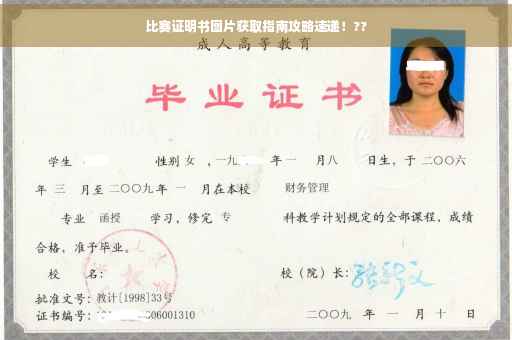 比赛证明书图片获取指南攻略速递！??
成人高等教育
毕业证书
学生 性别 女 ，一九 年 一 月八 日生，于 二〇〇六
年 三 月至 二〇〇九 年 一 月在本校 财务管理
专业 函授 学习，修完 专 科教学计划规定的全部课程，成绩
合格，准予毕业。
校 名： 校（院）长：
批准文号：教计[1998]33号
证书编号： 06001310 二〇〇九 年 一 月 十 日